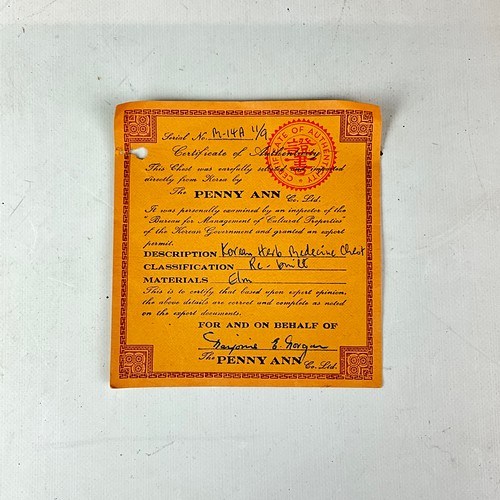 Serial No. M-14A 11/9
Certificate of Authenticity
CERTIFICATE OF AUTHENTICITY
證書
This Chest was carefully selected and imported
directly from Korea by
The PENNY ANN Co. Ltd.
It was personally examined by an inspector of the
"Bureau for Management of Cultural Properties"
of the Korean Government and granted an export
permit.
DESCRIPTION Korean Herb Medecine Chest
CLASSIFICATION Re-built
MATERIALS Elm
This is to certify that based upon expert opinion,
the above details are correct and complete as noted
on the export documents.
FOR AND ON BEHALF OF
Marjorie E. Morgan
The PENNY ANN Co. Ltd.